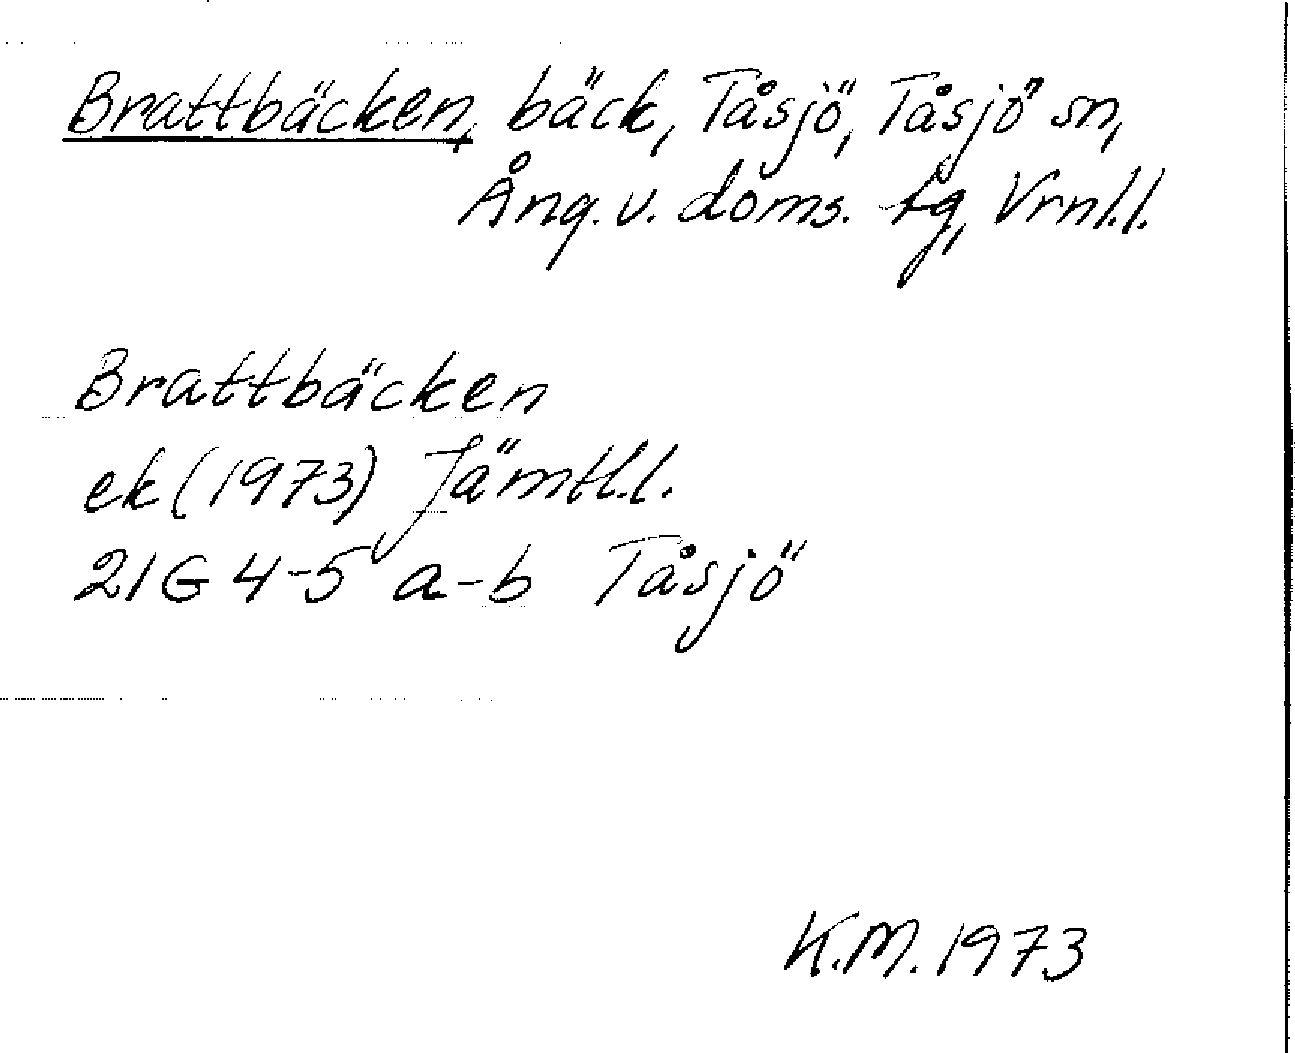 Brattbäcken, bäck, Tåsjö, Tåsjö sn,
Ång. v. doms. tg, Vrnl.l.
Brattbäcken
ek (1973) Jämtl.l.
21G 4-5 a-b Tåsjö
K.M. 1973